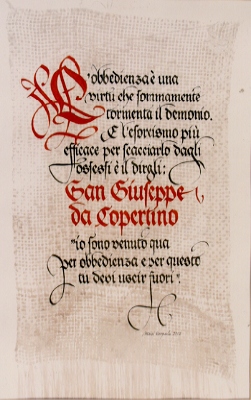 L'obbedienza è una
virtù che sommamente
tormenta il demonio.
E l'esorcismo più
efficace per scacciarlo dagli
ossessi è il dirgli:
San Giuseppe
da Copertino
"io sono venuto qua
per obbedienza e per questo
tu devi uscir fuori".